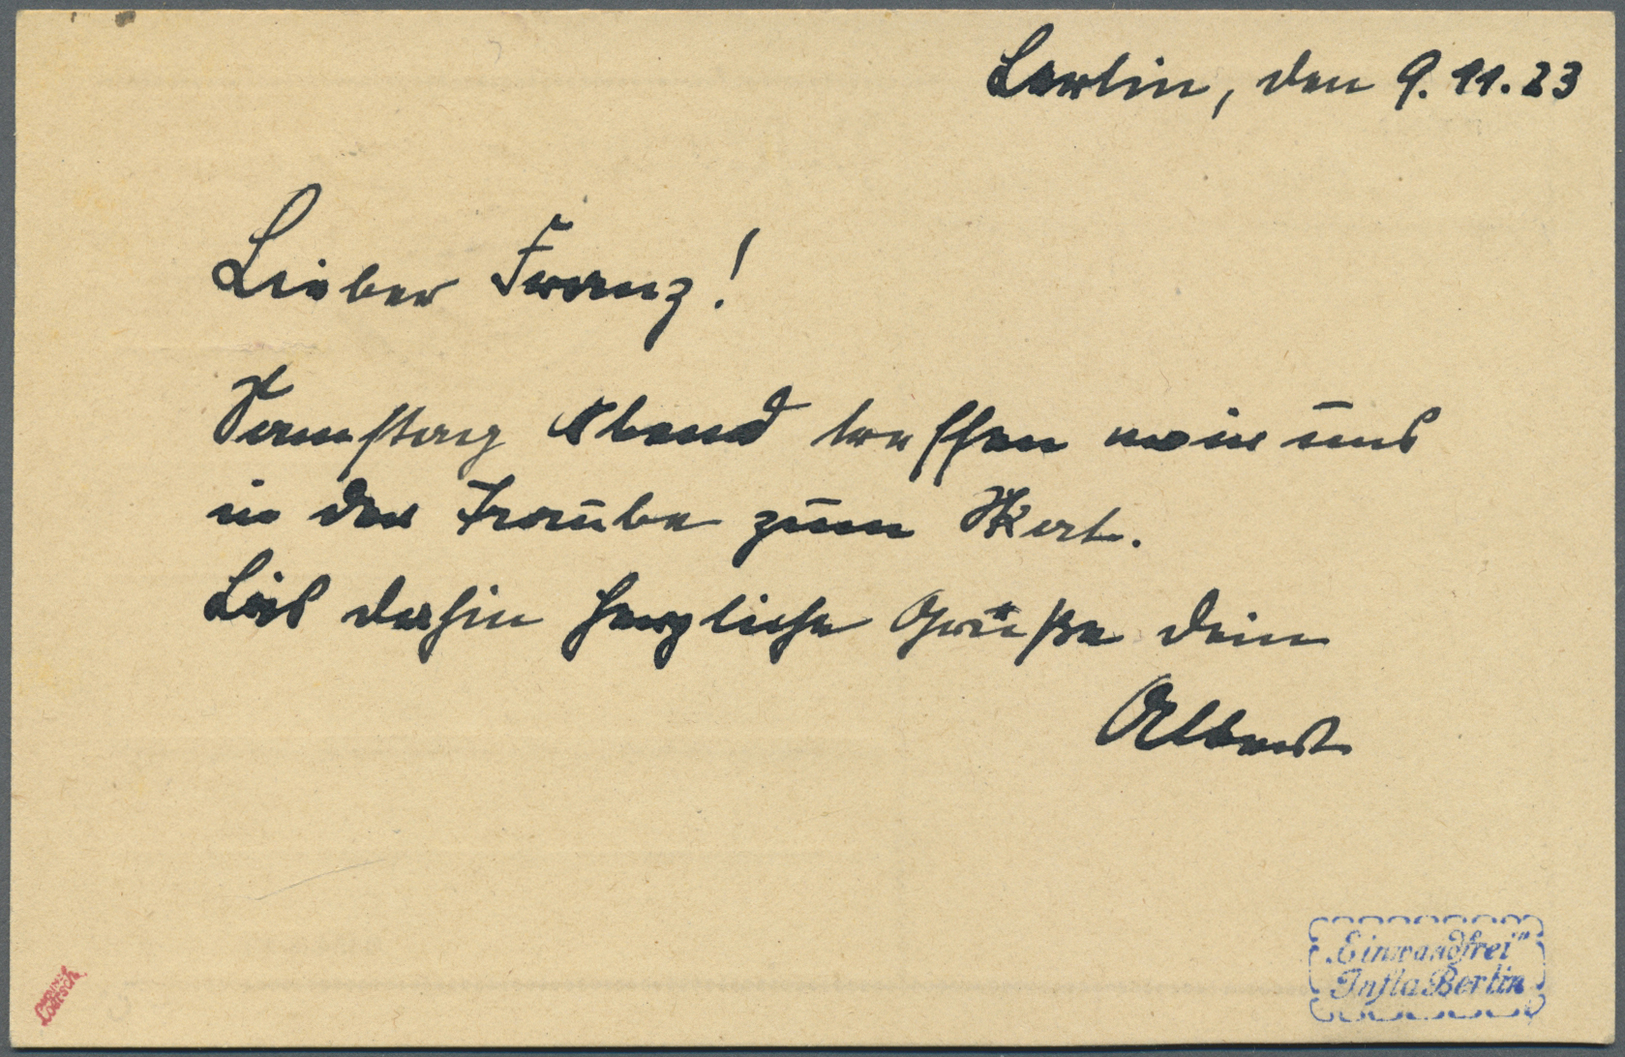 Berlin, den 9.11.23
Lieber Franz!
Samstag Abend treffen wir uns
in der Traube zum Skat.
Bis dahin herzliche Grüße Dein
Albert
„Einwandfrei"
Infla Berlin